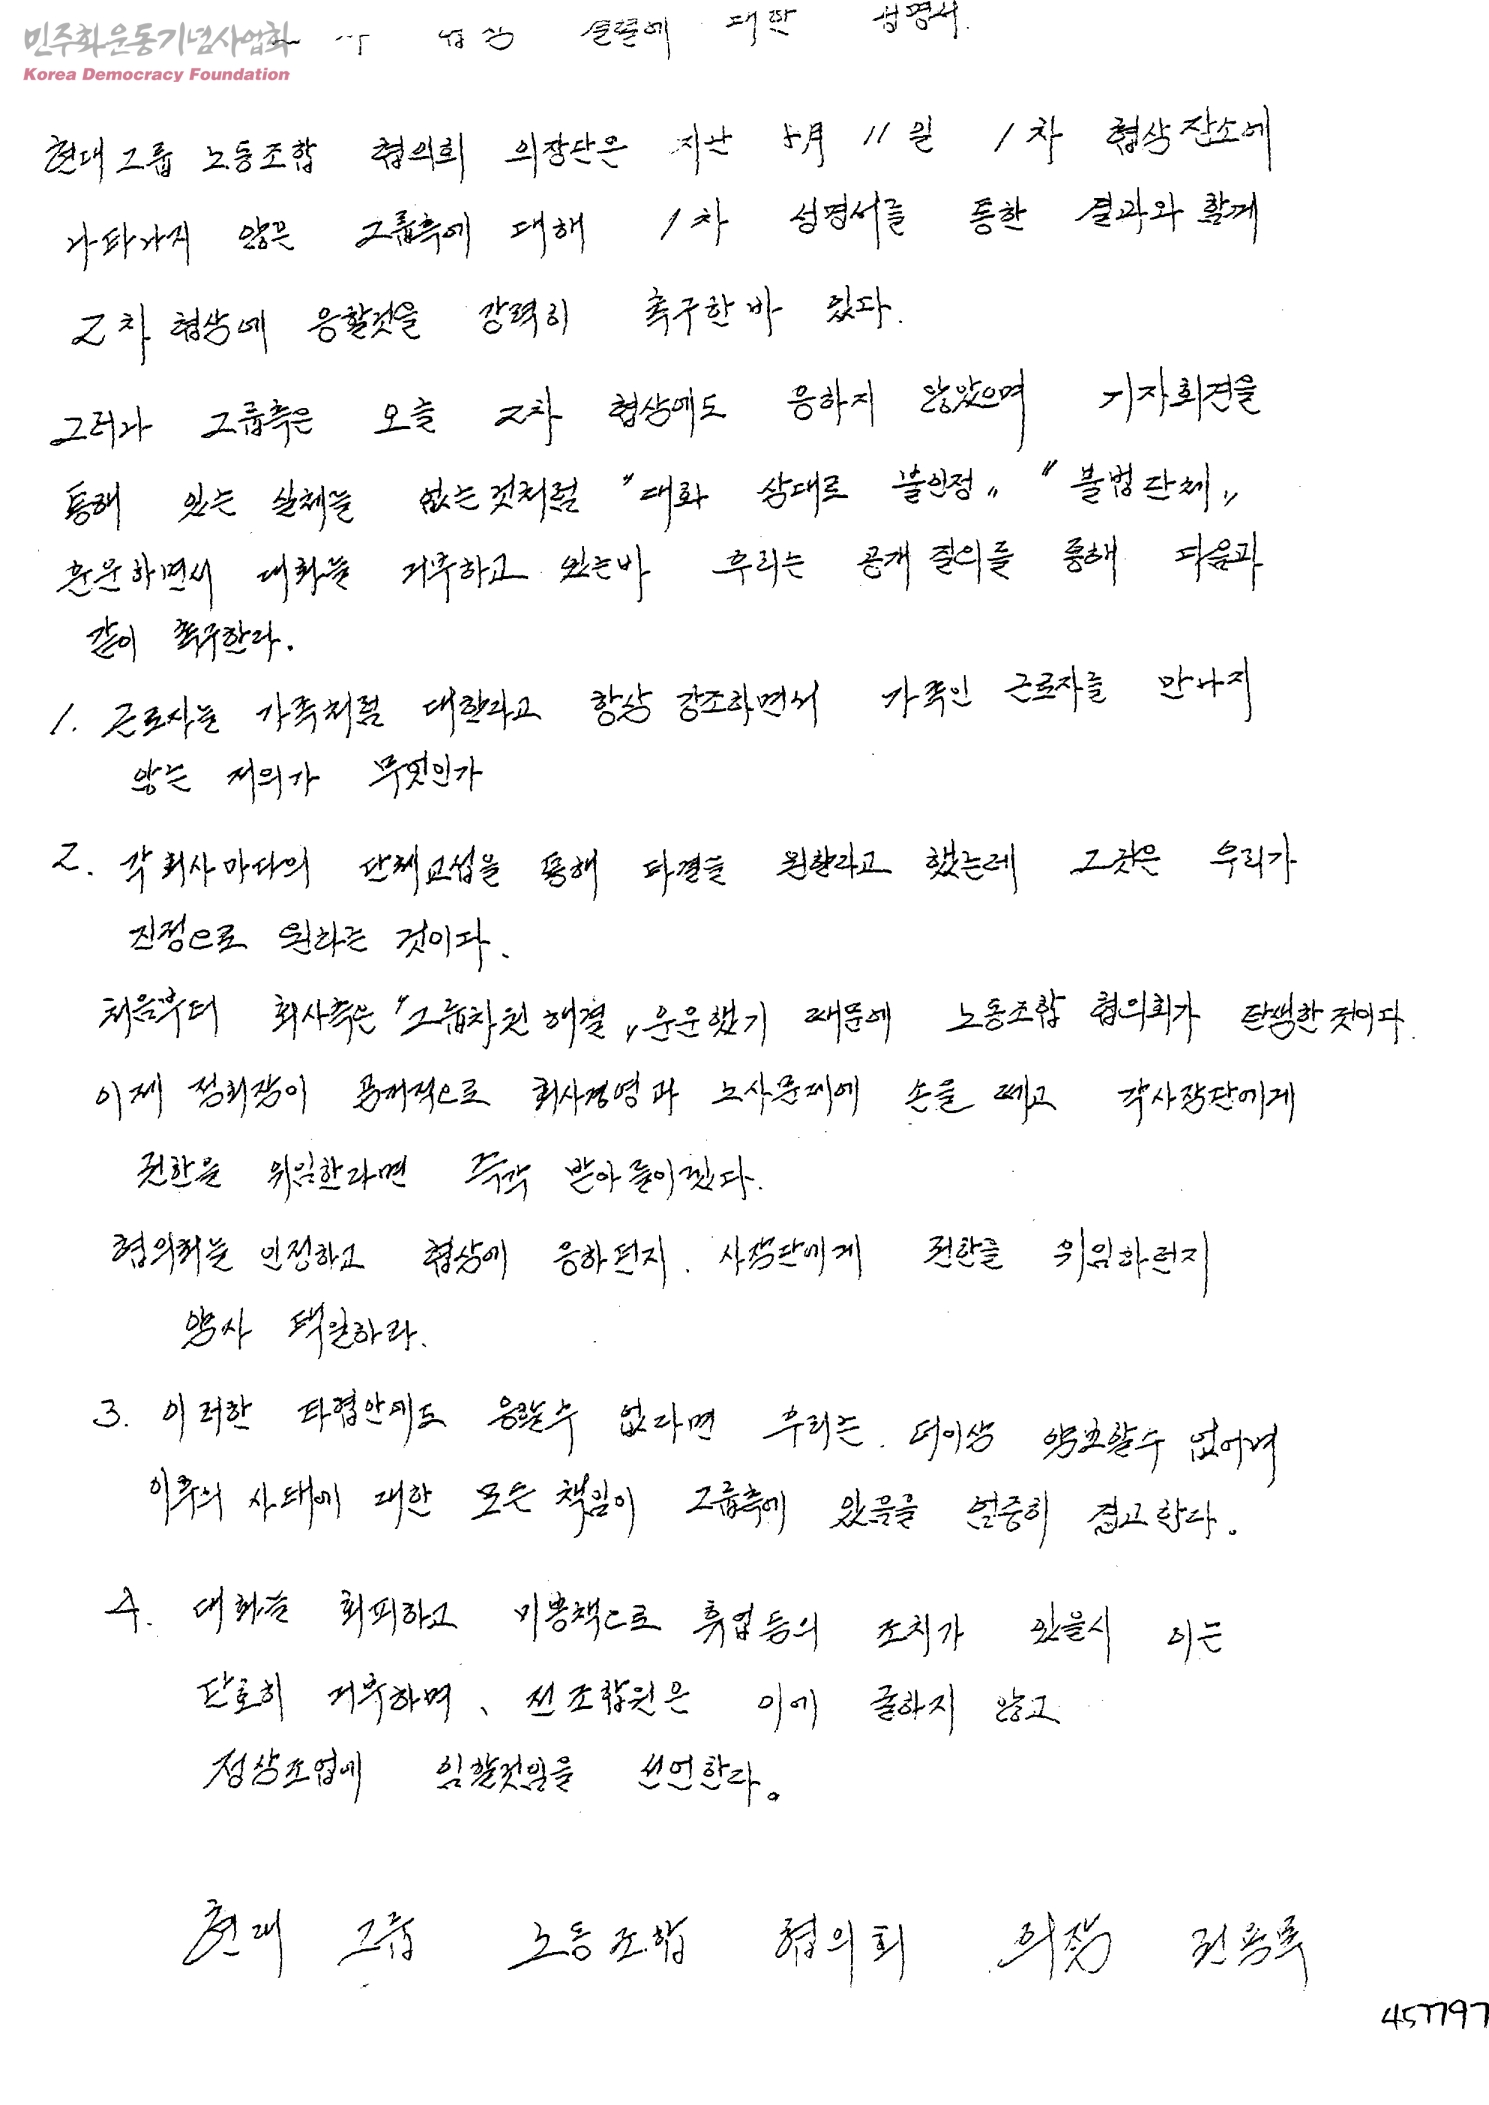 민주화운동기념사업회
Korea Democracy Foundation
협상 결렬에 대한 성명서.
현대그룹 노동조합 협의회 의장단은 지난 8月 11일 1차 협상장소에
나타나지 않은 그룹측에 대해 1차 성명서를 통한 결과와 함께
2차 협상에 응할것을 강력히 촉구한바 있다.
그러나 그룹측은 오늘 2차 협상에도 응하지 않았으며 기자회견을
통해 있는 실체를 없는것처럼 "대화 상대로 불인정" "불법단체"
운운하면서 대화를 거부하고 있는바 우리는 공개 질의를 통해 다음과
같이 촉구한다.
1. 근로자를 가족처럼 대한다고 항상 강조하면서 가족인 근로자를 만나지
않는 저의가 무엇인가
2. 각회사마다의 단체교섭을 통해 타결을 원한다고 했는데 그것은 우리가
진정으로 원하는 것이다.
처음부터 회사측은 "그룹차원해결" 운운했기 때문에 노동조합 협의회가 탄생한것이다.
이제 정회장이 공개적으로 회사경영과 노사문제에 손을 떼고 각사장단에게
권한을 위임한다면 즉각 받아들이겠다.
협의회를 인정하고 협상에 응하던지. 사장단에게 권한을 위임하던지
양사 택일하라.
3. 이러한 타협안에도 응할수 없다면 우리는 더이상 양보할수 없으며
이후의 사태에 대한 모든 책임이 그룹측에 있음을 엄중히 경고한다.
4. 대화를 회피하고 미봉책으로 휴업등의 조치가 있을시 이는
단호히 거부하며, 전조합원은 이에 굴하지 않고
정상조업에 임할것임을 선언한다.
현대 그룹 노동조합 협의회 의장 권용목
457797